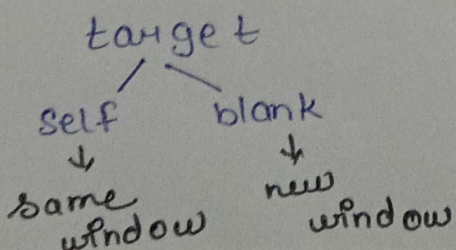 target
self blank
same new
window window